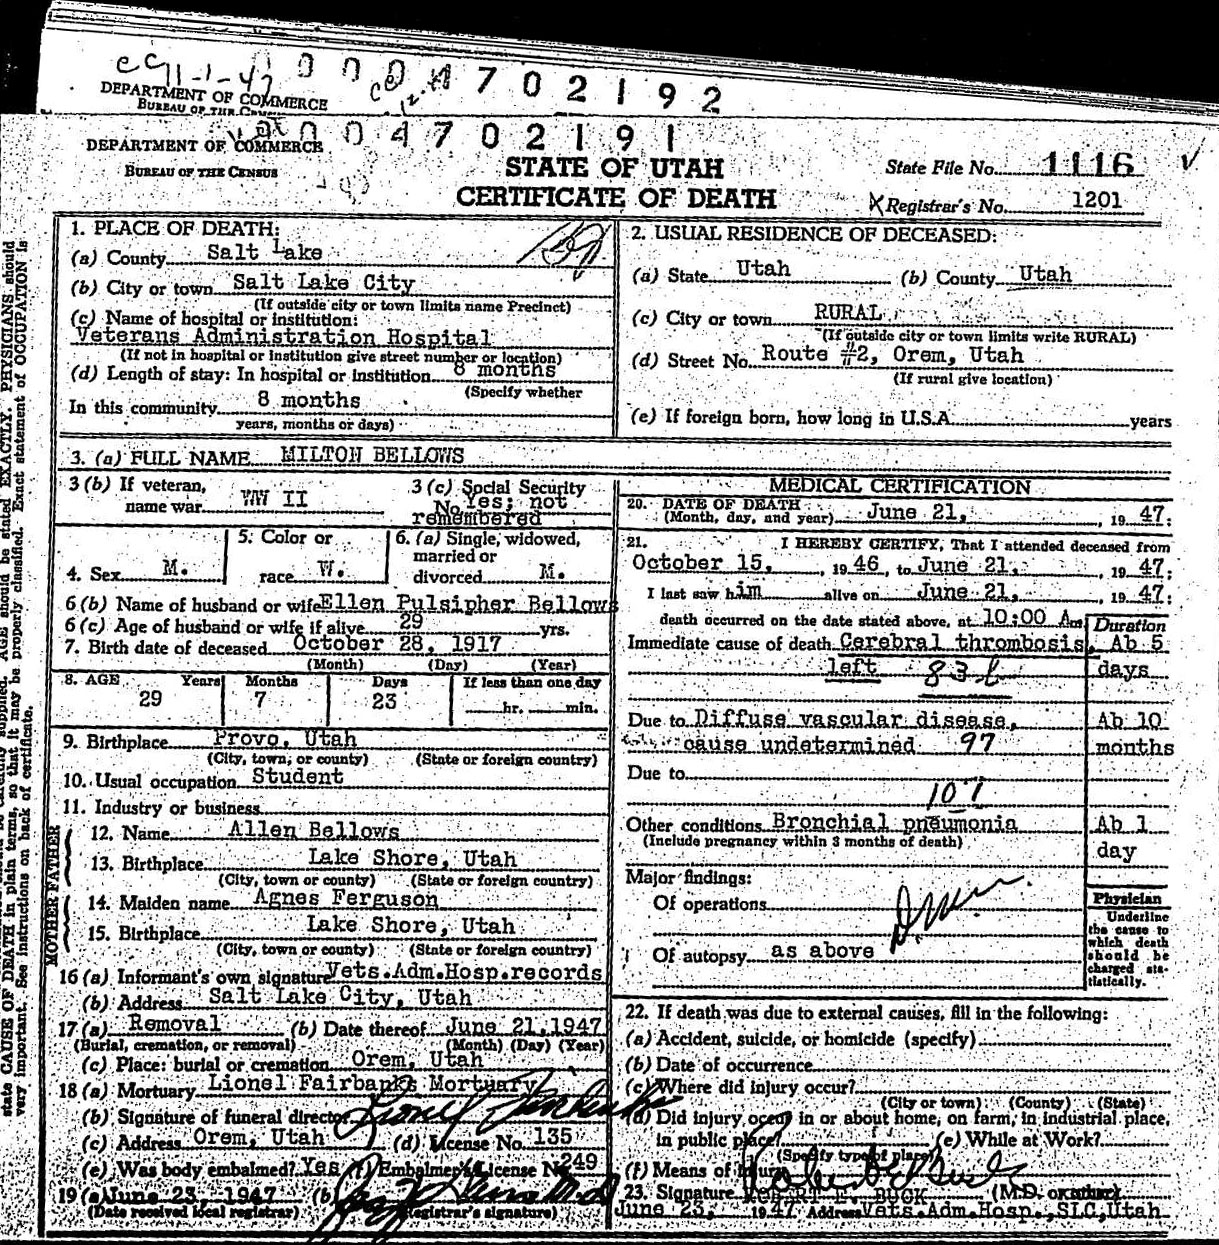 0004702192
DEPARTMENT OF COMMERCE
BUREAU OF THE
004702191
DEPARTMENT OF COMMERCE
BUREAU OF THE CENSUS
STATE OF UTAH
CERTIFICATE OF DEATH
State File No. 1116
Registrar's No. 1201
1. PLACE OF DEATH:
(a) County Salt Lake
(b) City or town Salt Lake City
(If outside city or town limits name Precinct)
(c) Name of hospital or institution:
Veterans Administration Hospital
(If not in hospital or institution give street number or location)
(d) Length of stay: In hospital or institution 8 months
(Specify whether
In this community 8 months
years, months or days)
2. USUAL RESIDENCE OF DECEASED:
(a) State Utah (b) County Utah
(c) City or town RURAL
(If outside city or town limits write RURAL)
(d) Street No. Route #2, Orem, Utah
(If rural give location)
(e) If foreign born, how long in U.S.A. years
3. (a) FULL NAME MILTON BELLOWS
3 (b) If veteran, name war WW II
3 (c) Social Security No. Yes; not remembered
4. Sex M.
5. Color or race W.
6. (a) Single, widowed, married or divorced M.
6 (b) Name of husband or wife Ellen Pulsipher Bellows
6 (c) Age of husband or wife if alive 29 yrs.
7. Birth date of deceased October 28, 1917
(Month) (Day) (Year)
8. AGE Years Months Days If less than one day
29 7 23 hr. min.
9. Birthplace Provo, Utah
(City, town, or county) (State or foreign country)
10. Usual occupation Student
11. Industry or business
FATHER
12. Name Allen Bellows
13. Birthplace Lake Shore, Utah
(City, town or county) (State or foreign country)
MOTHER
14. Maiden name Agnes Ferguson
15. Birthplace Lake Shore, Utah
(City, town or county) (State or foreign country)
16 (a) Informant's own signature Vets.Adm.Hosp.records
(b) Address Salt Lake City, Utah
17 (a) Removal (b) Date thereof June 21,1947
(Burial, cremation, or removal) (Month) (Day) (Year)
(c) Place: burial or cremation Orem, Utah
18 (a) Mortuary Lionel Fairbanks Mortuary
(b) Signature of funeral director Lionel Fairbanks
(c) Address Orem, Utah (d) License No. 135
(e) Was body embalmed? Yes (f) Embalmer's License No 249
19 (a) June 23, 1947 (b)
(Date received local registrar) (Registrar's signature)
MEDICAL CERTIFICATION
20. DATE OF DEATH
(Month, day, and year) June 21, 1947;
21. I HEREBY CERTIFY, That I attended deceased from
October 15, 1946, to June 21, 1947;
I last saw him alive on June 21, 1947;
death occurred on the date stated above, at 10:00 Am
Duration
Immediate cause of death Cerebral thrombosis, Ab 5
left 83b days
Due to Diffuse vascular disease, Ab 10
cause undetermined 97 months
Due to
107
Other conditions Bronchial pneumonia Ab 1
(Include pregnancy within 3 months of death) day
Major findings:
Of operations
Of autopsy as above
Physician
Underline
the cause to
which death
should be
charged sta-
tistically.
22. If death was due to external causes, fill in the following:
(a) Accident, suicide, or homicide (specify)
(b) Date of occurrence
(c) Where did injury occur?
(City or town) (County) (State)
(d) Did injury occur in or about home, on farm, in industrial place,
in public place? (e) While at Work?
(Specify type of place)
(f) Means of Injury
23. Signature ROBERT E. BUCK (M.D. or other)
June 23, 1947 Address Vets.Adm.Hosp.,SLC,Utah